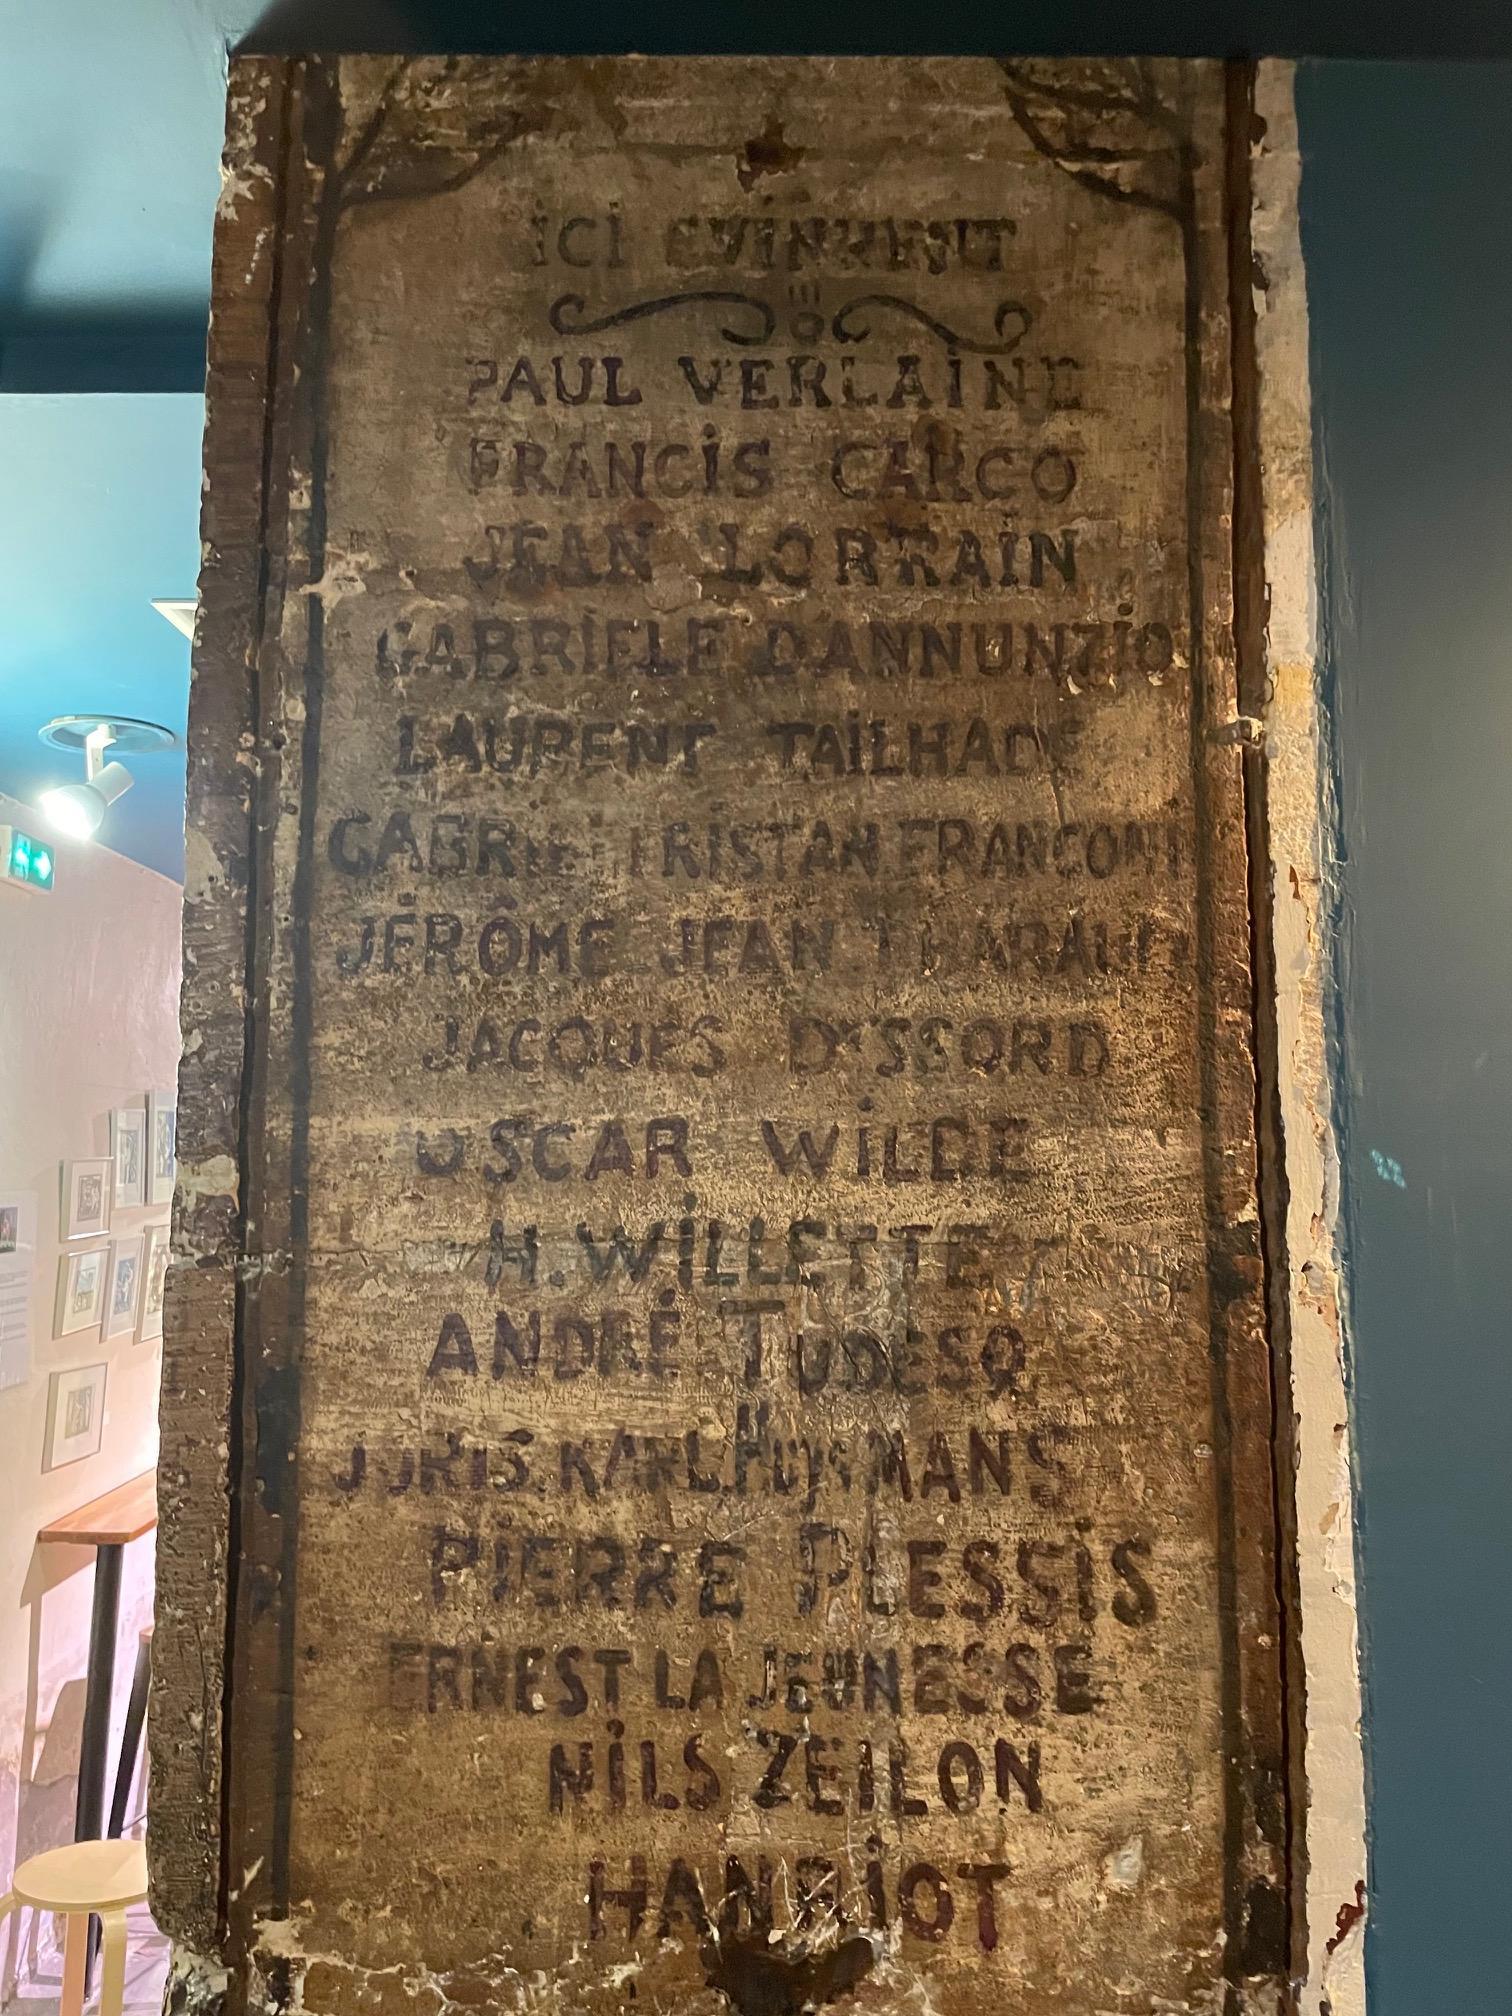 ICI EVINRENT
PAUL VERLAINE
FRANCIS CARCO
JEAN LORRAIN
GABRIELE D'ANNUNZIO
LAURENT TAILHADE
GABRIEL TRISTAN FRANCONI
JÉRÔME JEAN THARAUD
JACQUES
OSCAR WILDE
H. WILLETTE
ANDRÉ TUDESQ
JORIS. KARL. HUYSMANS
PIERRE PLESSIS
ERNEST LA JEUNESSE
NILS ZEILON
HANRIOT